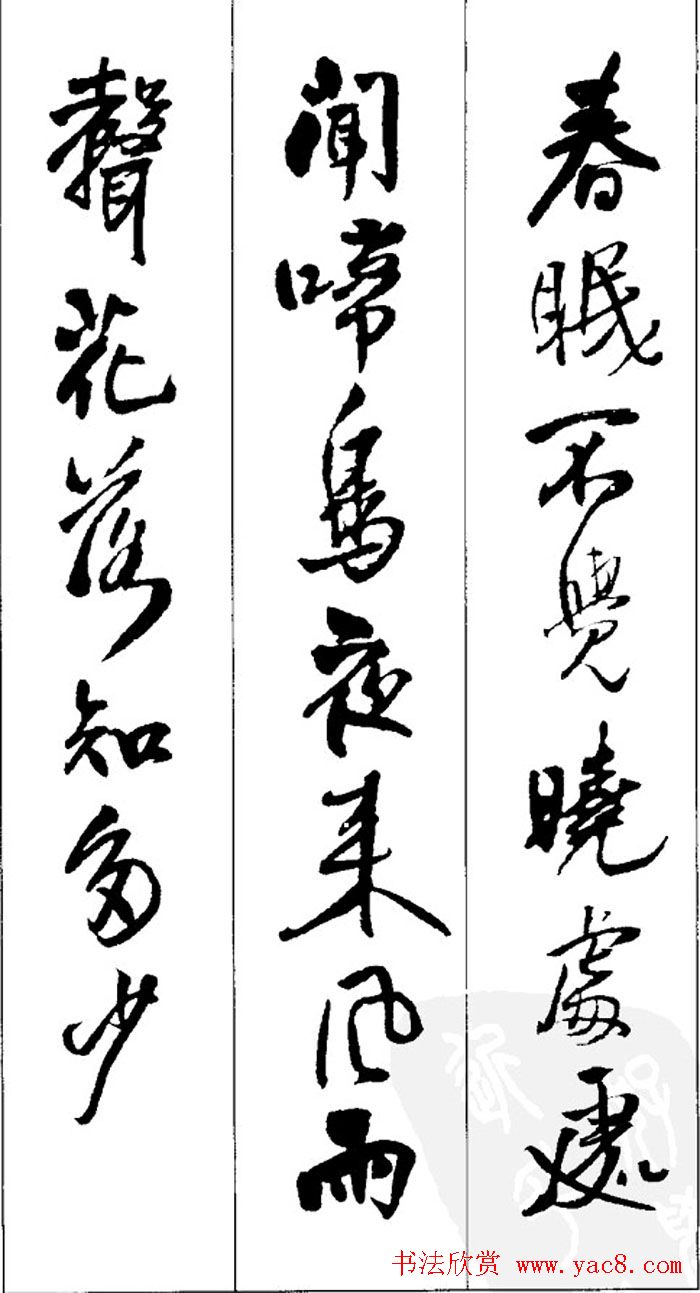 春眠不覺曉處處
聞啼鳥夜来風雨
聲花落知多少
书法欣赏 www.yac8.com